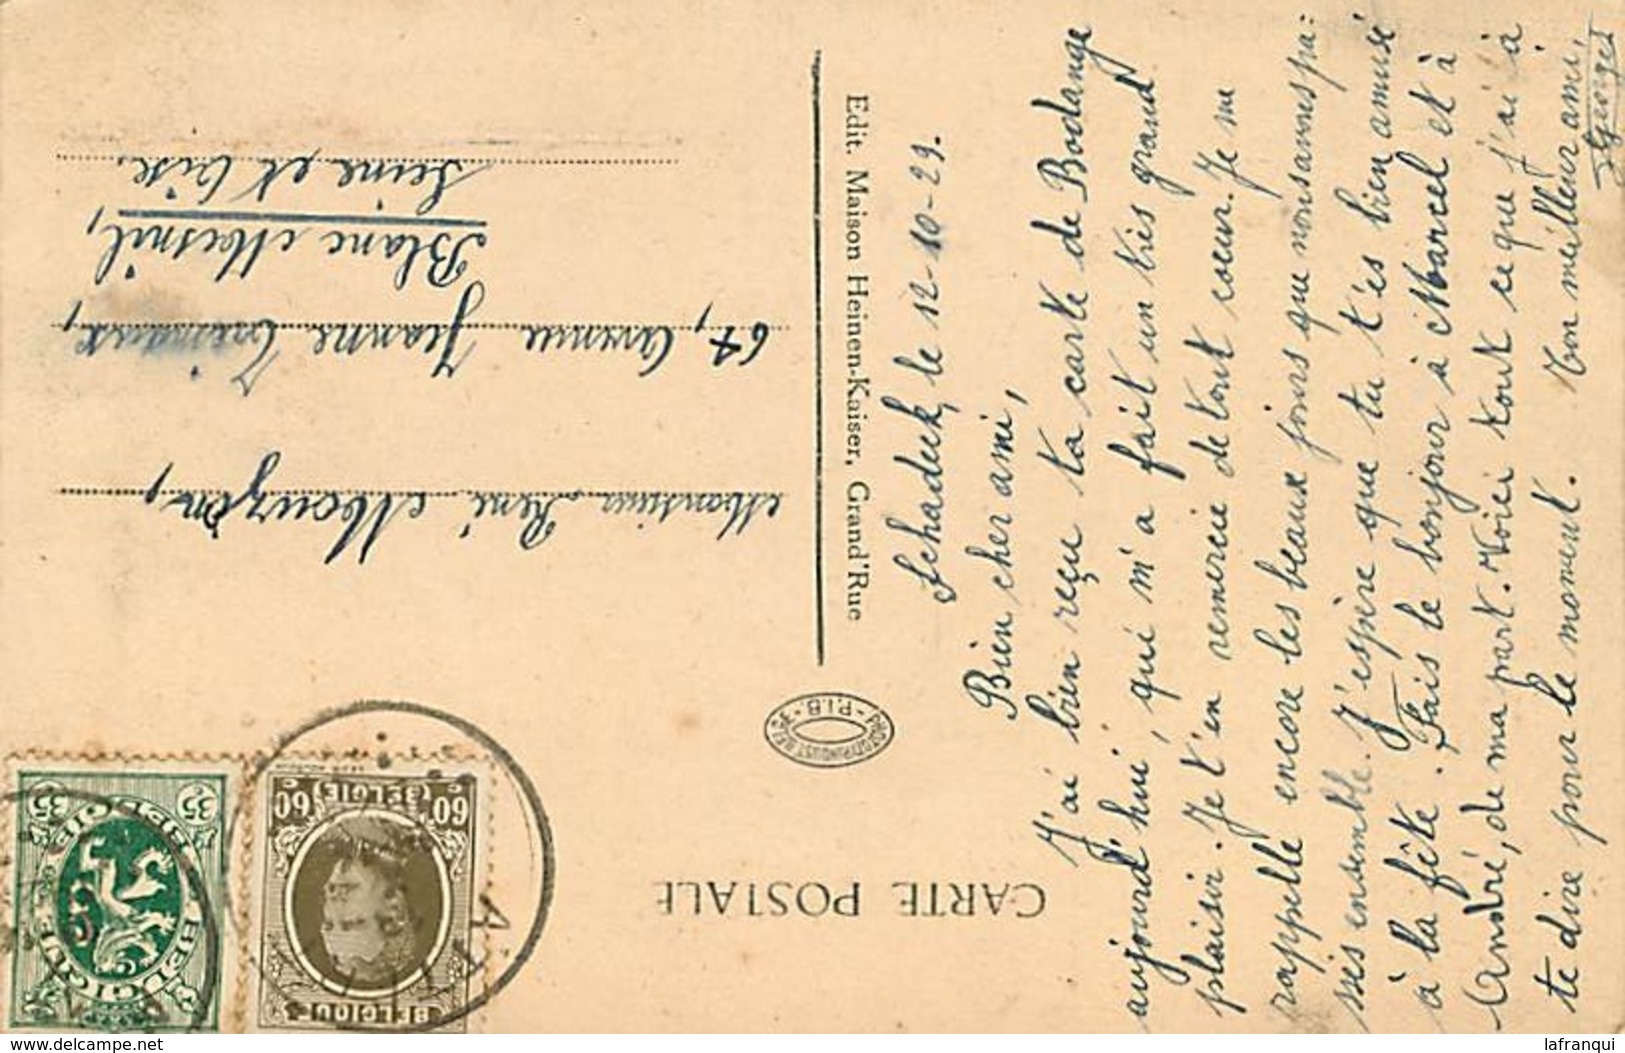 CARTE POSTALE
Edit. Maison Heinen-Kaiser, Grand'Rue
PHOTOTYP. INDUST. BELGE - P.I.B. -
BELGIQUE
60 60
(BELGIE)
BELGIQUE BELGIE
35 35
Monsieur René Mouzon,
64, Avenue Jeanne
Blanc Mesnil,
Seine et Oise.
le 12-10-29.
Bien cher ami,
J'ai bien reçu ta carte de Bodange
aujourd'hui, qui m'a fait un très grand
plaisir. Je t'en remercie de tout coeur. Je me
rappelle encore les beaux jours que nous avons pas-
sés ensemble. J'espère que tu t'es bien amusé
à la fête. Fais le bonjour à Marcel et à
André, de ma part. Voici tout ce que j'ai à
te dire pour le moment. Ton meilleur ami,
Georges
www.delcampe.net
lafranqui